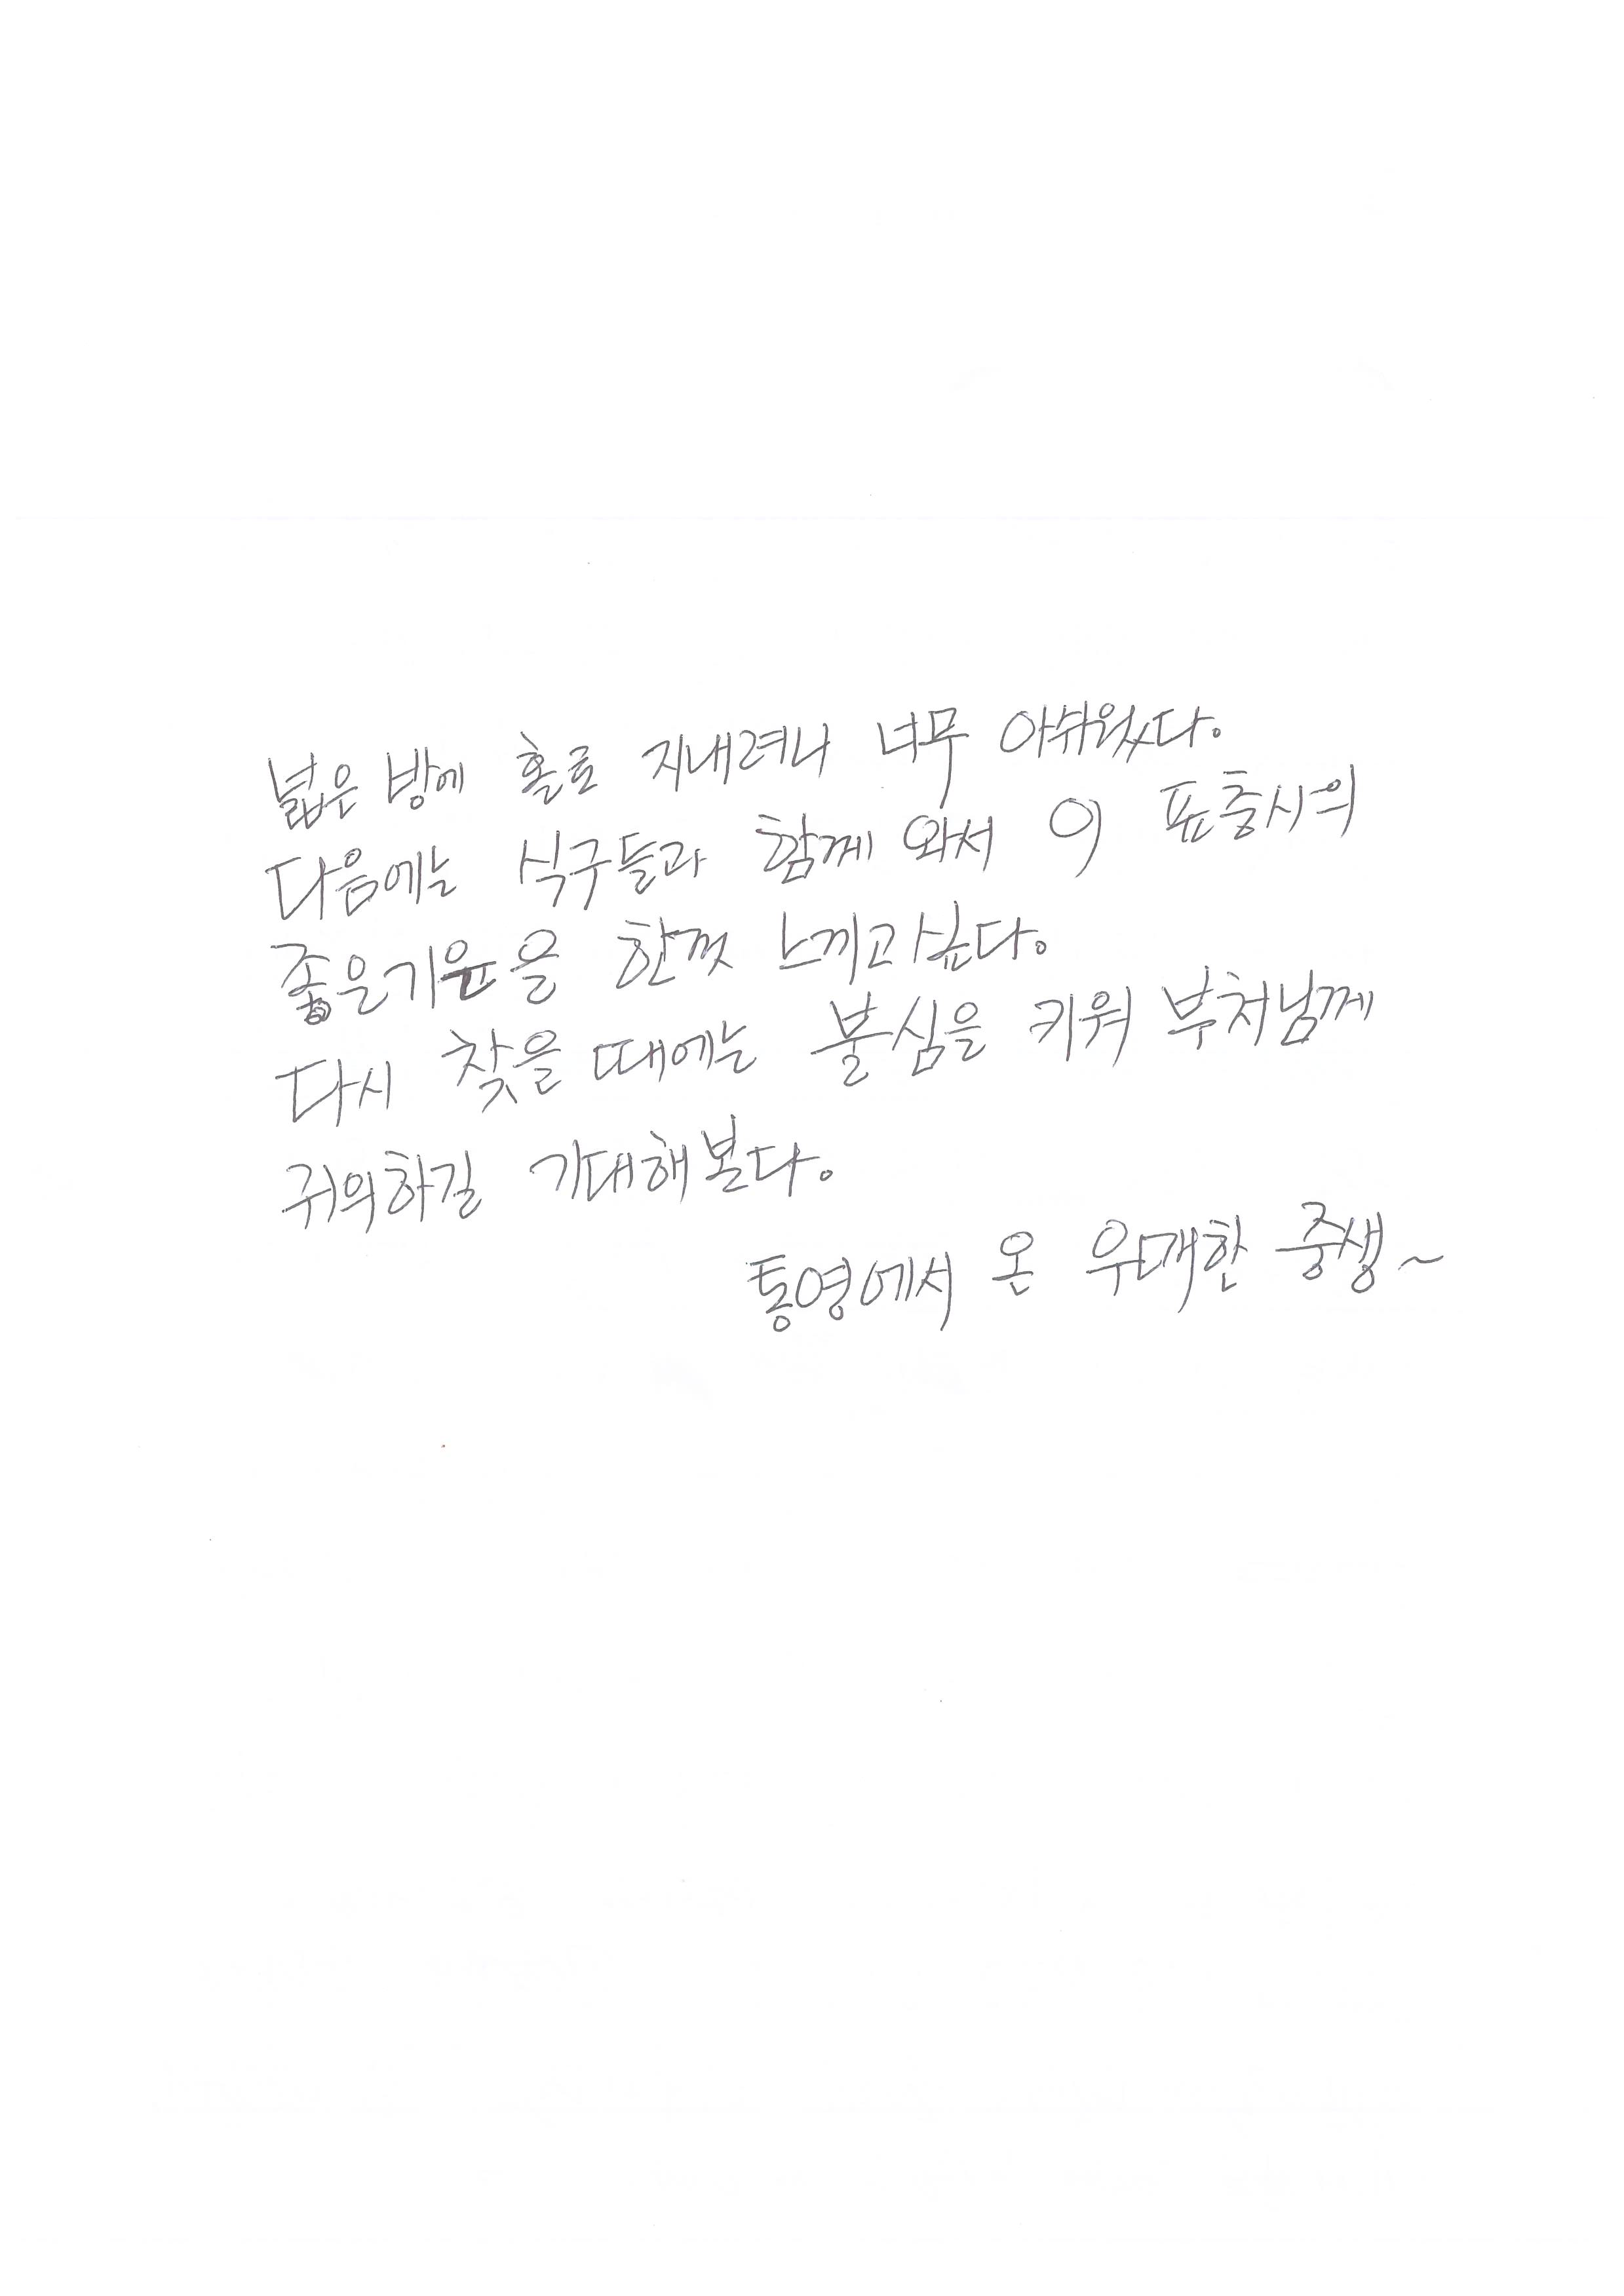 넓은 방에 홀로 지내려니 너무 아쉬웠다.
다음에는 식구들과 함께 와서 이 표충사의
좋은기운을 한껏 느끼고싶다.
다시 찾을 때에는 불심을 키워 부처님께
귀의하길 기대해본다.
통영에서 온 우매한 중생~